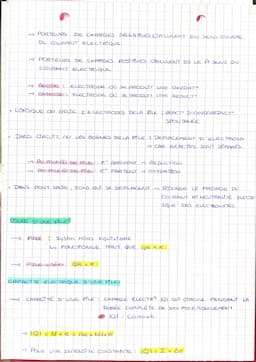 → PORTEURS DE CHARGES NÉGATIVES CIRCULENT EN SENS INVERSE
DU COURANT ELECTRIQUE.
→ PORTEURS DE CHARGES POSITIVES CIRCULENT DS LE M SENS DU
COURANT ELECTRIQUE.
→ ANODE : ELECTRODE OÙ SE PRODUIT UNE OXYDAT°
→ CATHODE : ELECTRODE OÙ SE PRODUIT UNE REDUCT°
• LORSQUE ON RELIE 2 ELECTRODES DE LA PILE
SPONTANÉE
• DANS CIRCUIT, OU LES BORNES DE LA PILE : DEPLACEMENT D'ELECTRONS
→ CAR REACTIFS SONT SÉPARÉS.
→ E- ARRIVENT → REDUCTION
→ E- PARTENT → OXYDATION
• DANS PONT SALIN, IONS QUI SE DEPLACENT → PASSAGE DU
COURANT ET NEUTRALITÉ ELECTR-
IQUE DES ELECTROLYTES
USURE D'UNE PILE
→ PILE : System HORS EQUILIBRE
EN FONCTIONNEMT TANT QUE QR ≠ K
→ PILE USÉE : QR = K
CAPACITÉ ELECTRIQUE D'UNE PILE
→ CAPACITÉ D'UNE PILE : CHARGE ELECTR° |Q| QUI CIRCULE PENDANT LA
DURÉE COMPLÈTE DE SON FONCTIONNEMENT
|Q| : Coulomb
→ |Q| = N × e =
→ POUR UNE INTENSITÉ CONSTANTE : |Q| = I × Δt